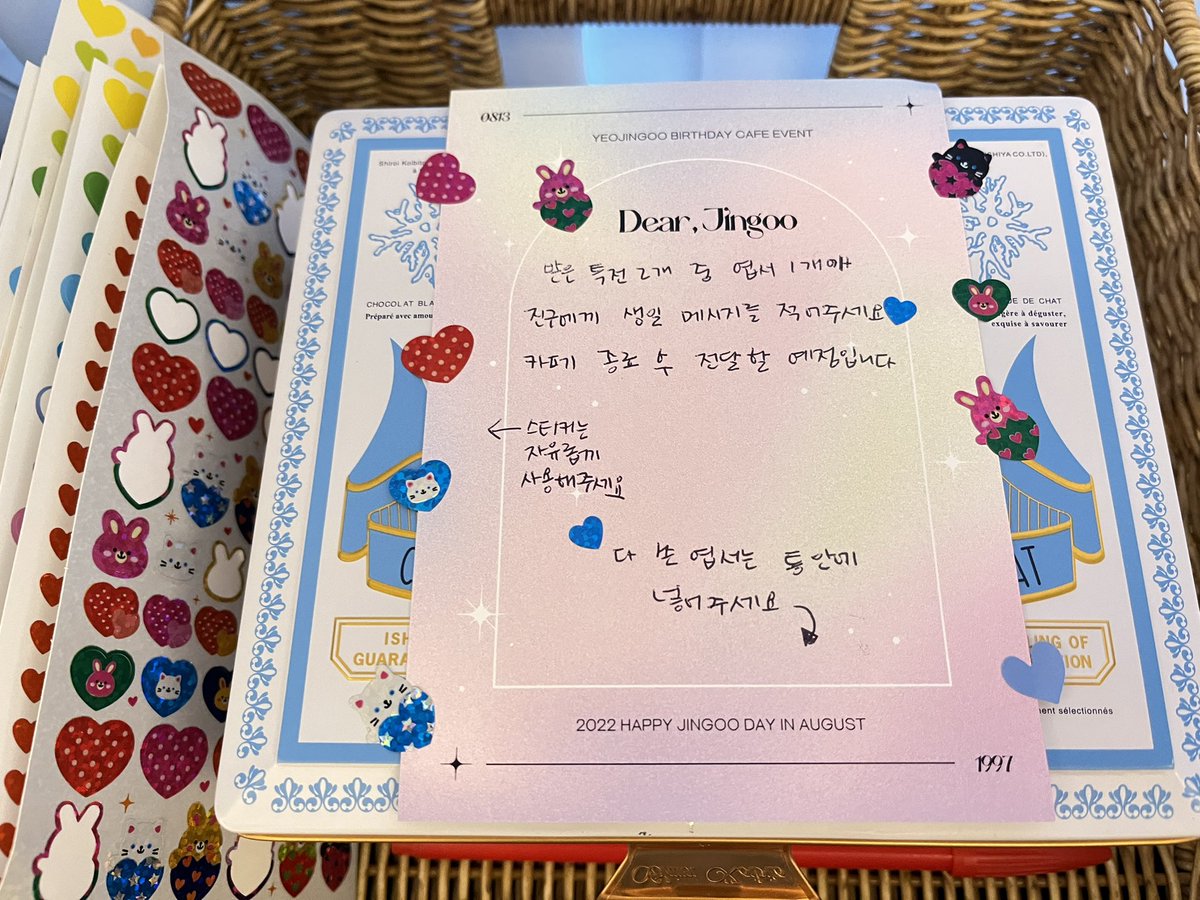 0813
YEOJINGOO BIRTHDAY CAFE EVENT
Dear, Jingoo
받은 특전 2개 중 엽서 1개에
진구에게 생일 메시지를 적어주세요
카페 종료 후 전달할 예정입니다
← 스티커는
자유롭게
사용해주세요
다 쓴 엽서는 통 안에
넣어주세요
2022 HAPPY JINGOO DAY IN AUGUST
1997
Shiroi Koibito
CHOCOLAT BLA
Préparé avec amou
ISH
GUARA
SHIYA CO.LTD),
DE DE CHAT
gère à déguster,
exquise à savourer
AT
LING OF
ION
ment sélectionnés